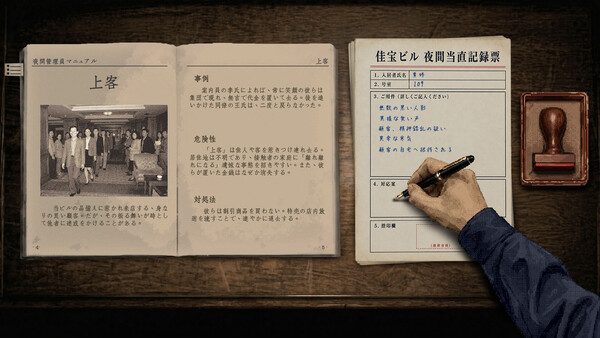 夜間管理員マニュアル
上客
上客
当ビルの品揃えに惹かれ来店する、身な
りの良い顧客。だが、その振る舞いが時とし
て他者に迷惑をかけることがある。
6
事例
案内員の李氏によれば、常に笑顔の彼らは
集団で現れ、無言で代金を置いて去る。後を追
いかけた同僚の王氏は、二度と戻らなかった。
危険性
「上客」は住人や客を惹きつけ連れ去る。
居住地は不明であり、接触者の家庭に「離れ離
れになる」連鎖な事態を招きやすい。また、彼
らが置いた金銭はなぜか消失する。
対処法
彼らは割引商品を買わない。特売の店内放
送を流すことで、速やかに退去する。
5
佳宝ビル 夜間当直記録票
1. 入居者氏名
2. 号室
109
3. ご用件（詳しくご記入ください）
色数の黒い人影
異様な笑い声
顧客、精神錯乱の疑い
異常な来客
顧客の自宅へ招待される
4. 対応案
5. 捺印欄